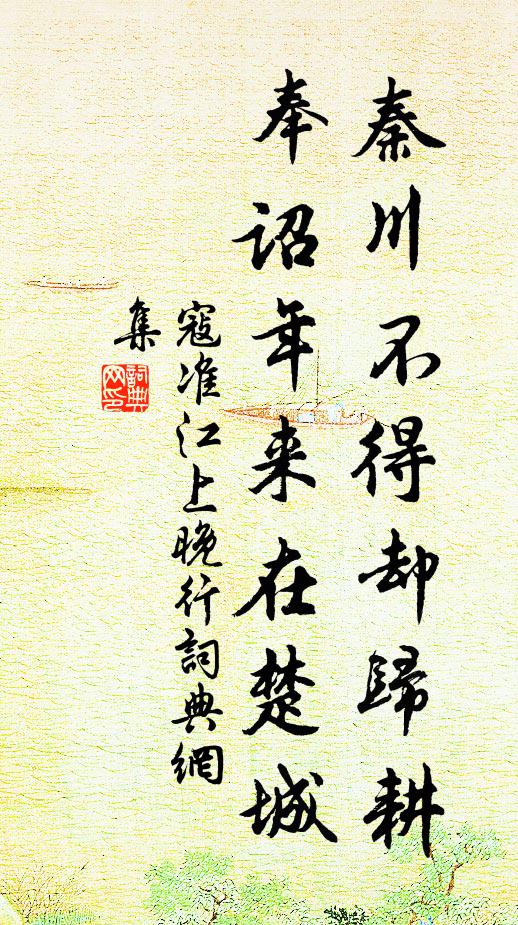 秦川不得却歸耕
奉詔年来在楚城
寇准江上晚行詞典網
集
詞典
网印